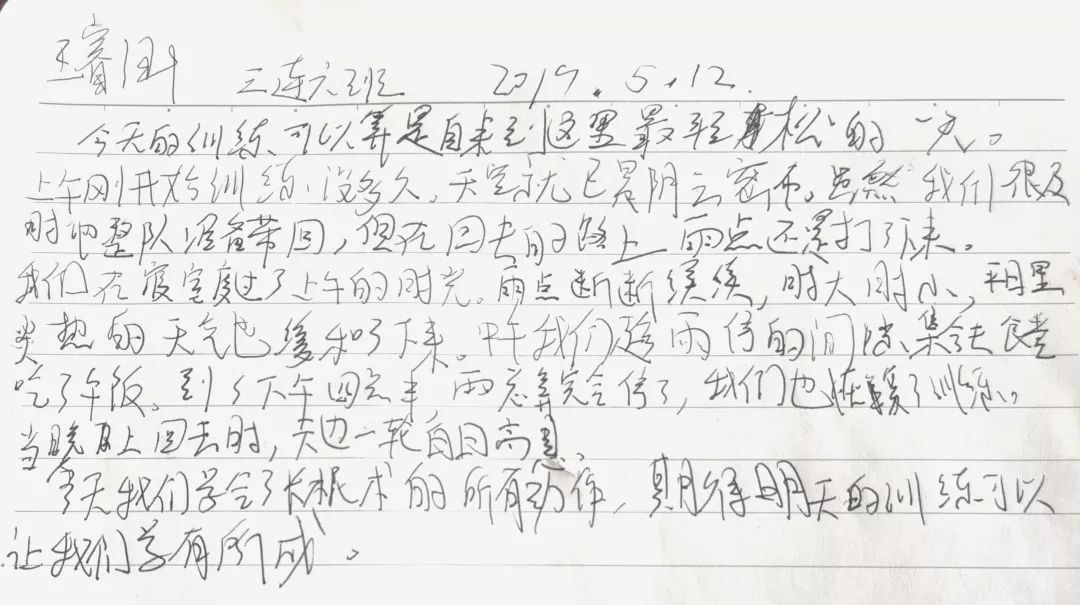 三连六班 2019.5.12.
今天的训练可以算是自来到这里最轻松的一天。
上午刚开始训练没多久,天空就已是阴云密布。虽然我们很及
时地整队准备带回,但在回去的路上雨点还是打了下来。
我们在寝室度过了上午的时光。雨点断断续续,时大时小,平日里
炎热的天气也缓和了下来。中午我们趁雨停的间隙集合去食堂
吃了午饭。到了下午四点半雨总算完全停了,我们也恢复了训练。
当晚上回去时,天边一轮白日高悬。
今天我们学会了长棍术的所有动作,期待明天的训练可以
让我们学有所成。